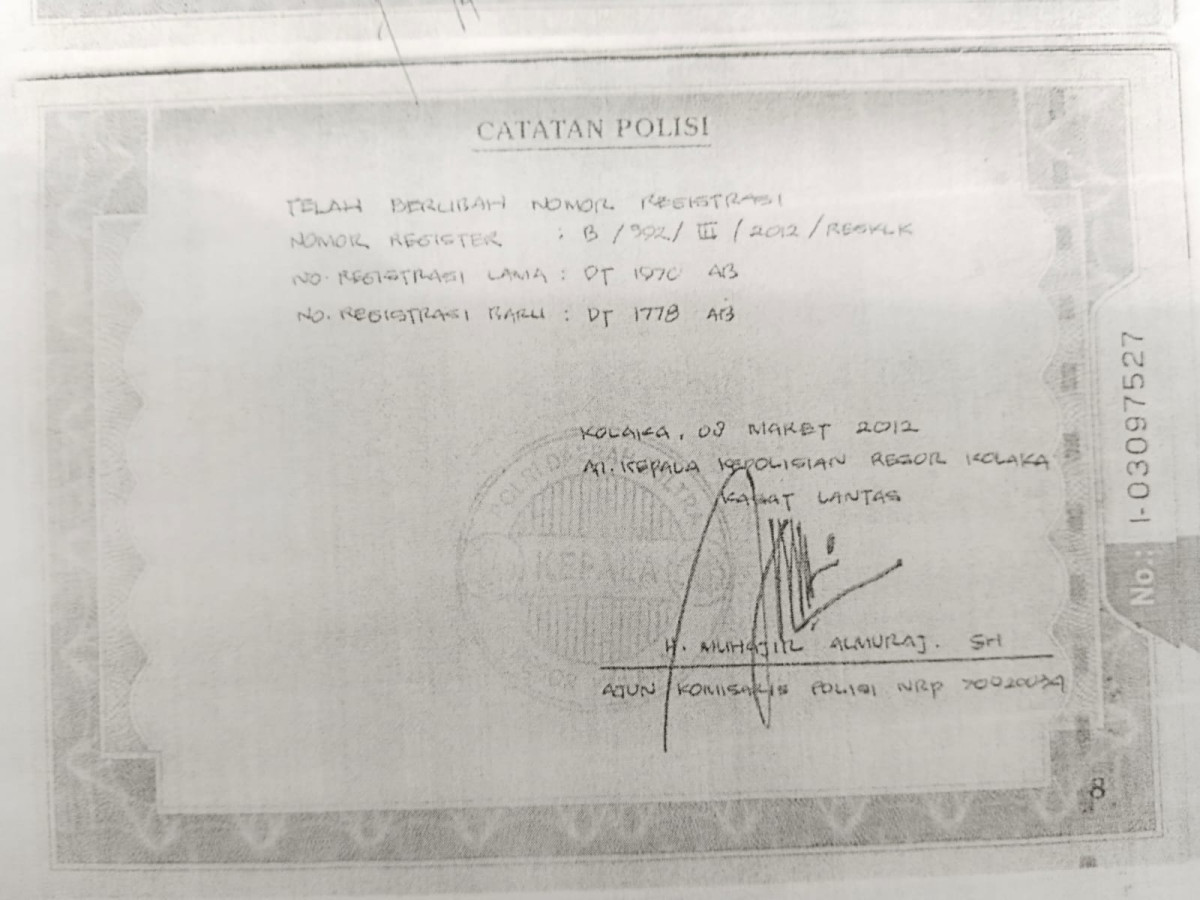 CATATAN POLISI
TELAH BERUBAH NOMOR REGISTRASI
NOMOR REGISTER : B / 392 / III / 2012 / RESKLK
NO. REGISTRASI LAMA : DT 1970 AB
NO. REGISTRASI BARU : DT 1778 AB
KOLAKA, 08 MARET 2012
An. KEPALA KEPOLISIAN RESOR KOLAKA
KASAT LANTAS
POLRI DAERAH SULTRA
KEPALA
H. MUHAJIR ALMURAJ. SH
AJUN KOMISARIS POLISI NRP
No.: I-03097527
8